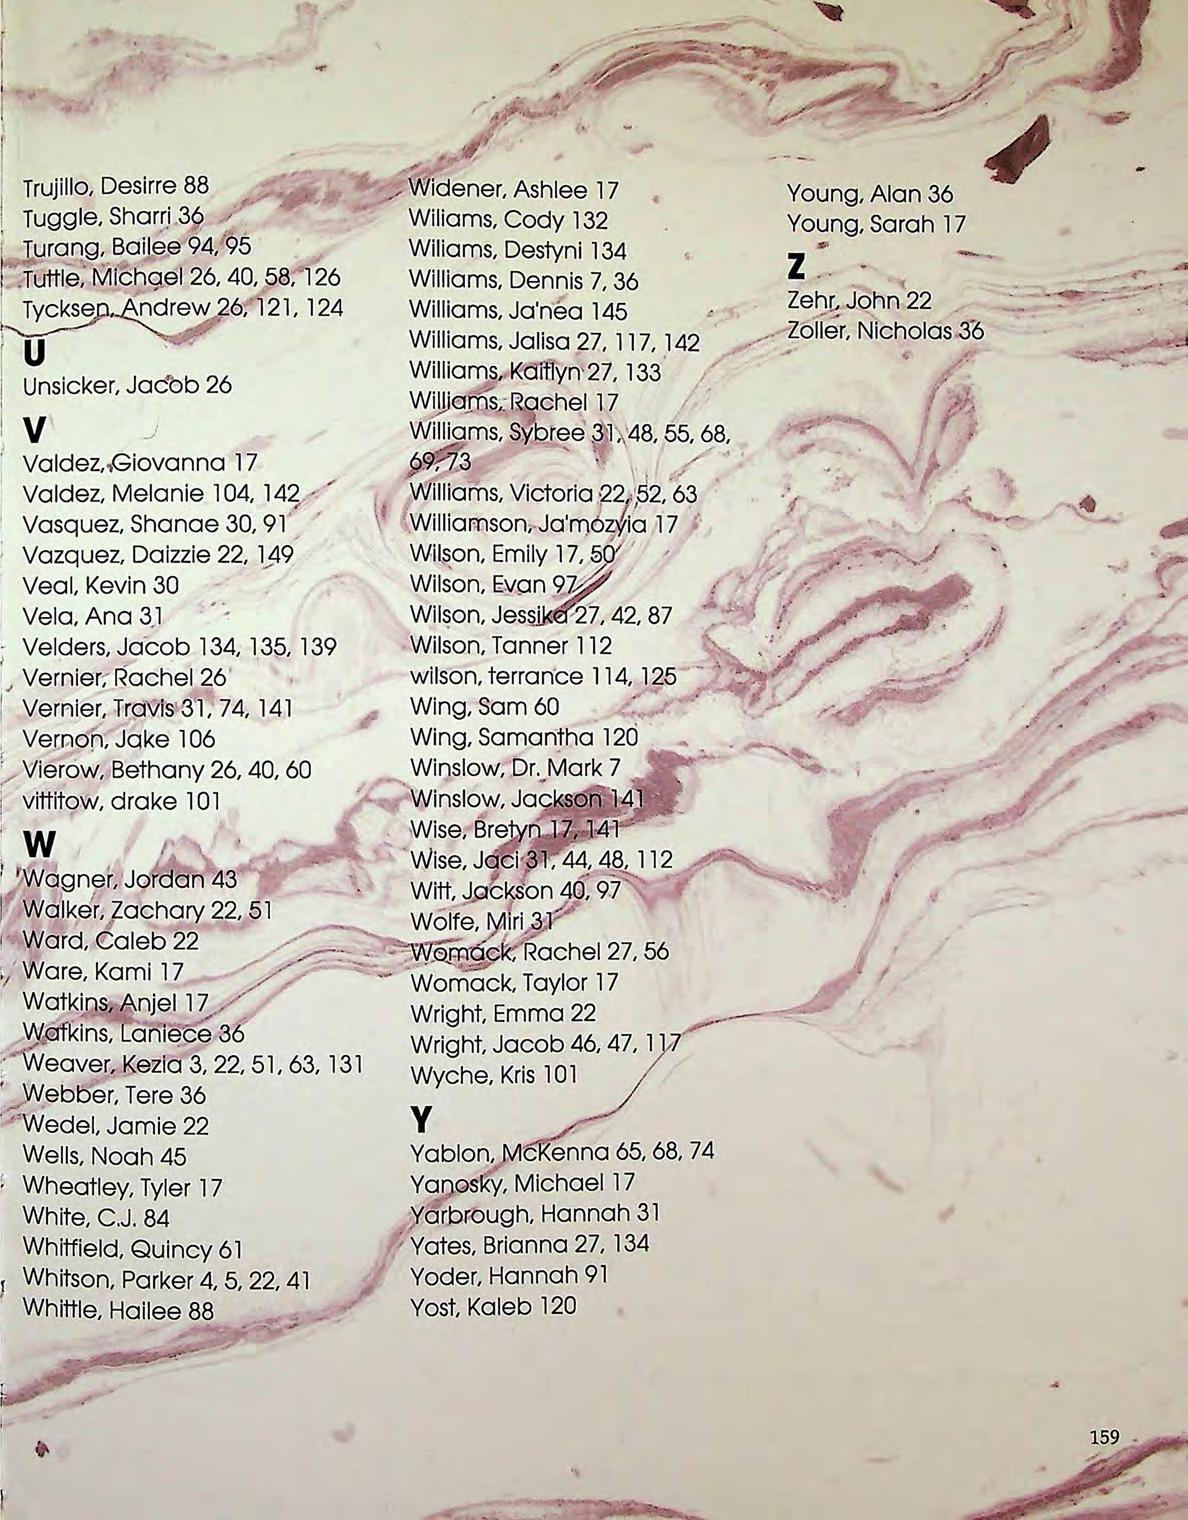 Trujillo, Desirre 88
Tuggle, Sharri 36
Turang, Bailee 94, 95
Tuttle, Michael 26, 40, 58, 126
Tycksen, Andrew 26, 121, 124
U
Unsicker, Jacob 26
V
Valdez, Giovanna 17
Valdez, Melanie 104, 142
Vasquez, Shanae 30, 91
Vazquez, Daizzie 22, 149
Veal, Kevin 30
Vela, Ana 31
Velders, Jacob 134, 135, 139
Vernier, Rachel 26
Vernier, Travis 31, 74, 141
Vernon, Jake 106
Vierow, Bethany 26, 40, 60
vittitow, drake 101
W
Wagner, Jordan 43
Walker, Zachary 22, 51
Ward, Caleb 22
Ware, Kami 17
Watkins, Anjel 17
Watkins, Laniece 36
Weaver, Kezia 3, 22, 51, 63, 131
Webber, Tere 36
Wedel, Jamie 22
Wells, Noah 45
Wheatley, Tyler 17
White, C.J. 84
Whitfield, Quincy 61
Whitson, Parker 4, 5, 22, 41
Whittle, Hailee 88
Widener, Ashlee 17
Wiliams, Cody 132
Wiliams, Destyni 134
Williams, Dennis 7, 36
Williams, Ja'nea 145
Williams, Jalisa 27, 117, 142
Williams, Kaitlyn 27, 133
Williams, Rachel 17
Williams, Sybree 31, 48, 55, 68,
69, 73
Williams, Victoria 22, 52, 63
Williamson, Ja'mozyia 17
Wilson, Emily 17, 50
Wilson, Evan 97
Wilson, Jessika 27, 42, 87
Wilson, Tanner 112
wilson, terrance 114, 125
Wing, Sam 60
Wing, Samantha 120
Winslow, Dr. Mark 7
Winslow, Jackson 141
Wise, Bretyn 17, 141
Wise, Jaci 31, 44, 48, 112
Witt, Jackson 40, 97
Wolfe, Miri 31
Womack, Rachel 27, 56
Womack, Taylor 17
Wright, Emma 22
Wright, Jacob 46, 47, 117
Wyche, Kris 101
Y
Yablon, McKenna 65, 68, 74
Yanosky, Michael 17
Yarbrough, Hannah 31
Yates, Brianna 27, 134
Yoder, Hannah 91
Yost, Kaleb 120
Young, Alan 36
Young, Sarah 17
Z
Zehr, John 22
Zoller, Nicholas 36
159